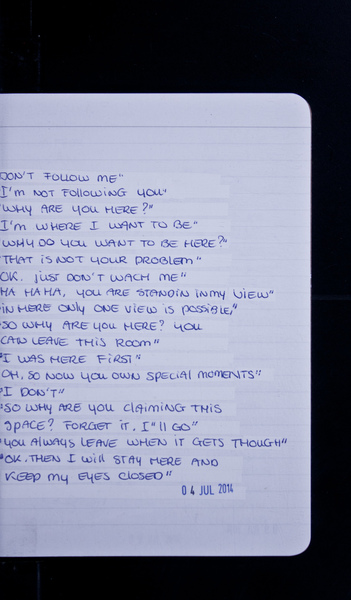 DON'T FOLLOW ME"
I'm NOT FOLLOWING YOU"
"WHY ARE YOU HERE?"
I'm WHERE I WANT TO BE"
"WHY DO YOU WANT TO BE HERE?"
"THAT IS NOT YOUR PROBLEM"
"OK. JUST DON'T WACH ME"
"HA HA HA, YOU ARE STANDIN IN MY VIEW"
"IN HERE ONLY ONE VIEW IS POSSIBLE"
"SO WHY ARE YOU HERE? YOU
CAN LEAVE THIS ROOM"
"I WAS HERE FIRST"
"OH, SO NOW YOU OWN SPECIAL MOMENTS"
"I DON'T"
"SO WHY ARE YOU CLAIMING THIS
SPACE? FORGET IT. I"LL GO"
"YOU ALWAYS LEAVE WHEN IT GETS THOUGH"
"OK. THEN I WILL STAY HERE AND
KEEP MY EYES CLOSED"
04 JUL 2014